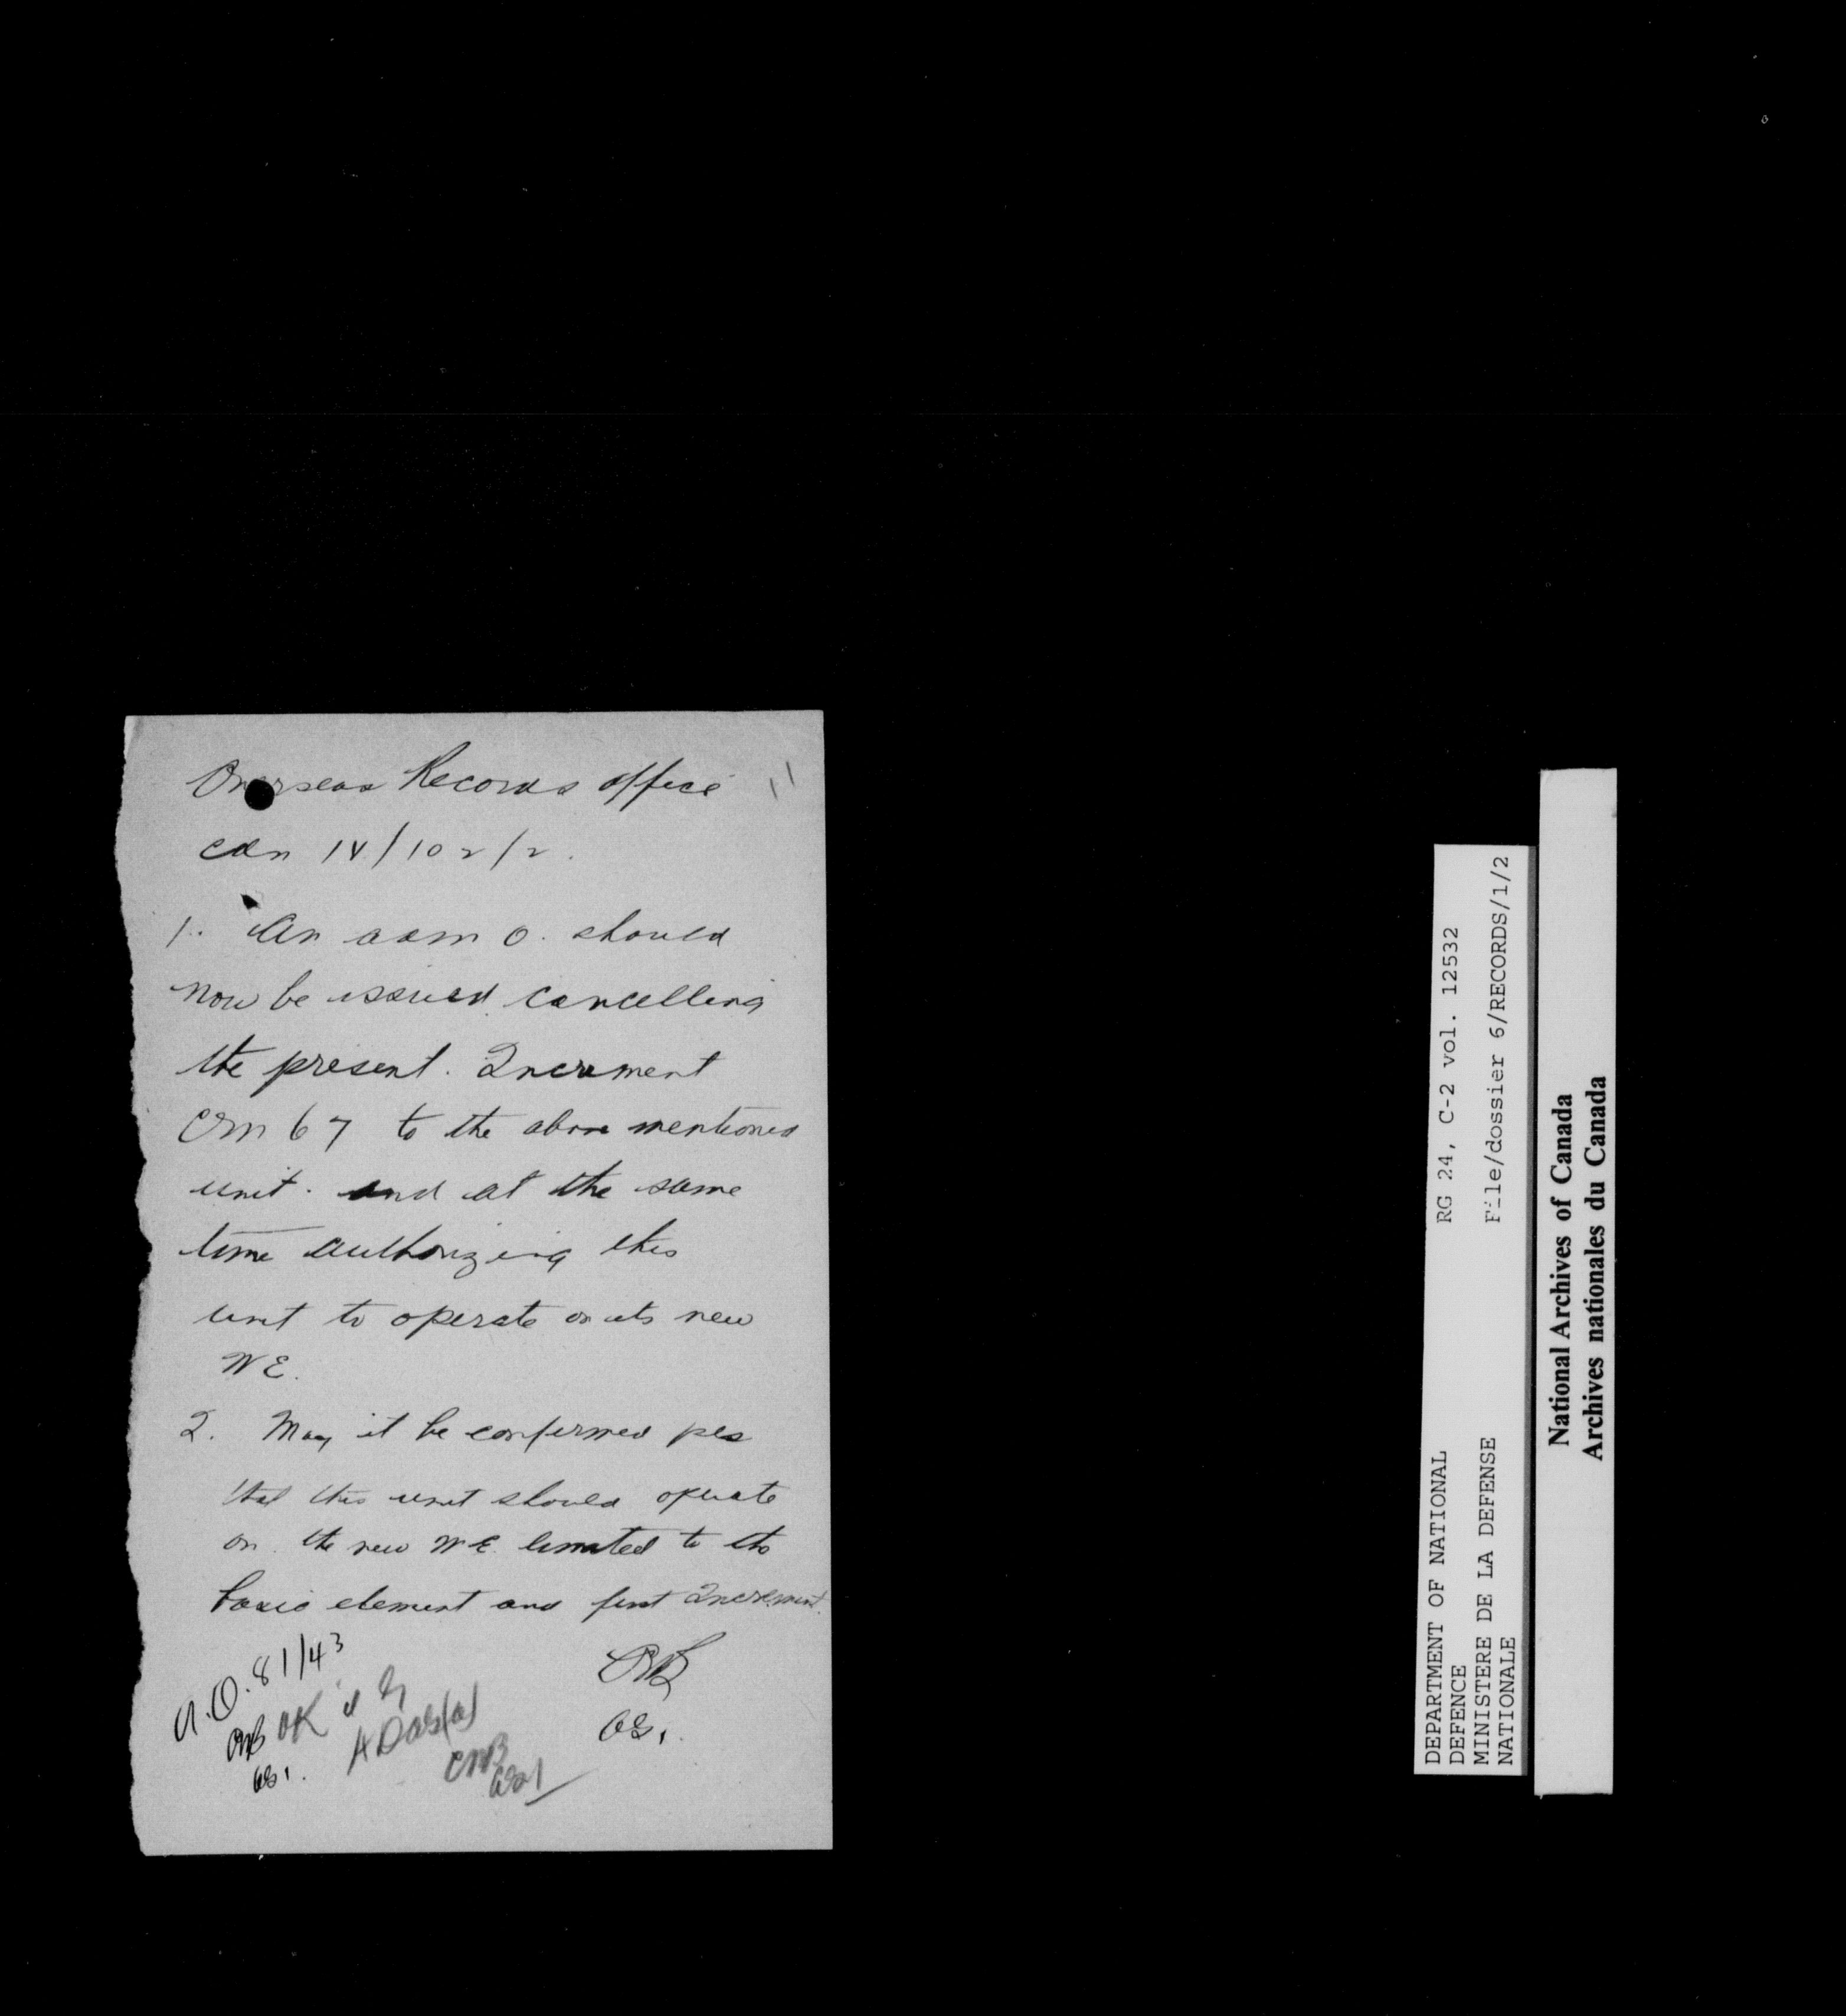 Overseas Records office
Cdn IV/102/2.
1. An adm O. should
now be issued cancelling
the present. Increment
Cdn 67 to the above mentioned
unit. and at the same
time authorizing this
unit to operate on its new
WE.
2. May it be confirmed pls
that this unit should operate
on the new WE. limited to the
basic element and first Increment.
A.O. 81/43
OK
RG 24, C-2 vol. 12532
File/dossier 6/RECORDS/1/2
DEPARTMENT OF NATIONAL
DEFENCE
MINISTERE DE LA DEFENSE
NATIONALE
National Archives of Canada
Archives nationales du Canada